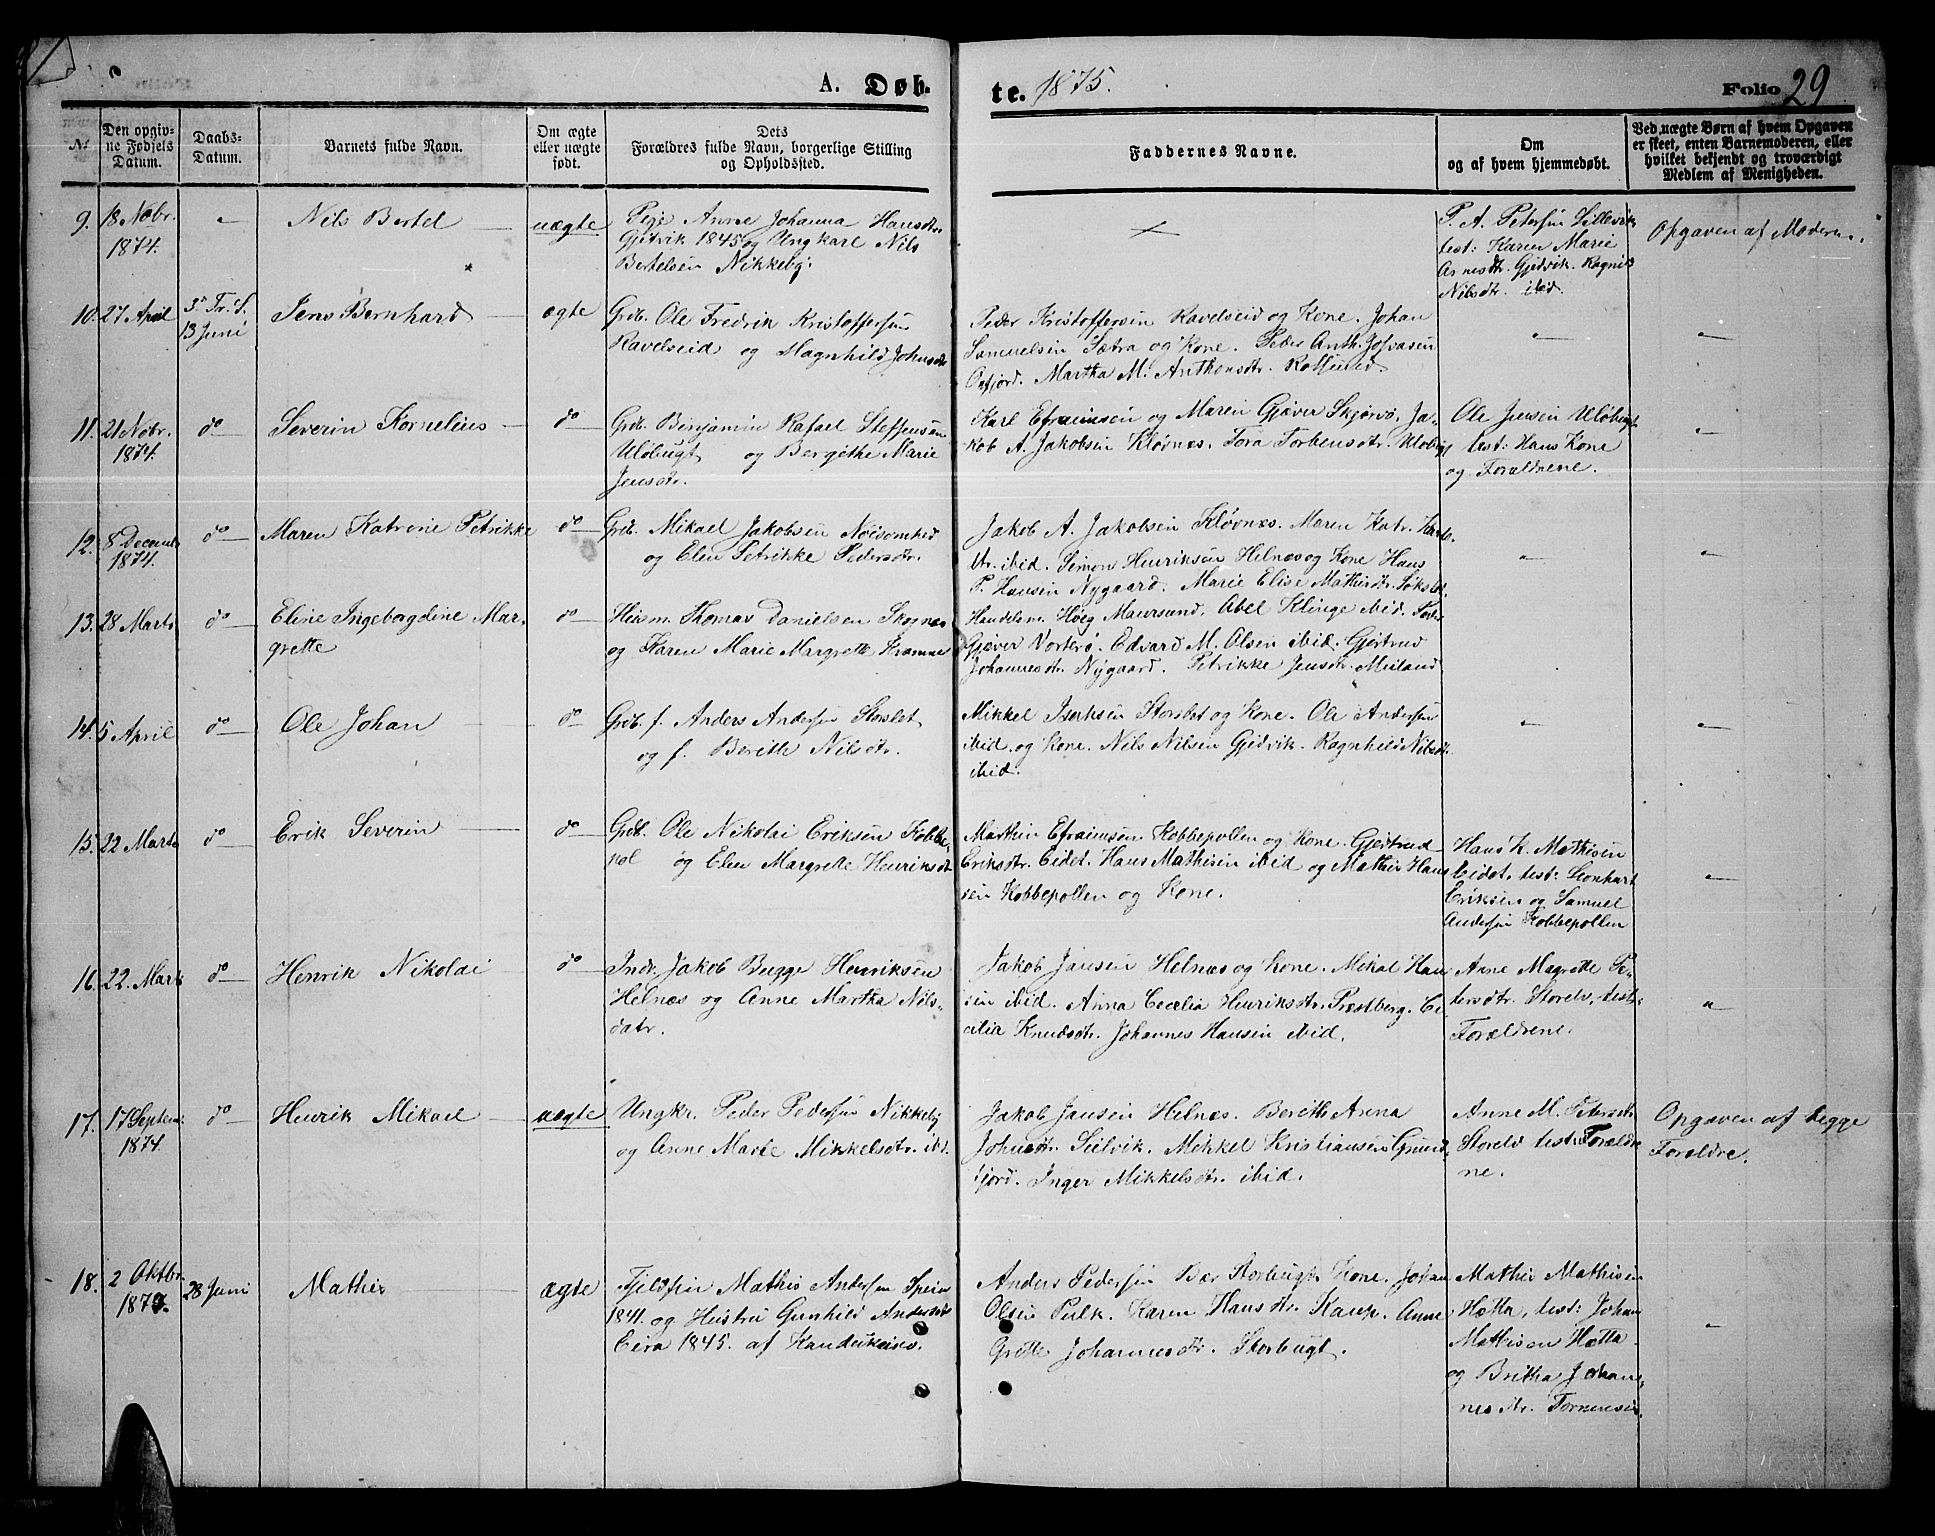 A. Døb- te. 1875. Folio 29
№
Den opgiv-
ne Fødsels
Datum.
Daabs-
Datum.
Barnets fulde Navn.
Om ægte
eller uægte
født.
Dets
Forældres fulde Navn, borgerlige Stilling
og Opholdssted.
Faddernes Navne.
Om
og af hvem hjemmedøbt.
Ved uægte Børn af hvem Opgaven
er skeet, enten Barnemoderen, eller
hvilket bekjendt og troværdigt
Medlem af Menigheden.
9. 18 Nobr. 1874. " Nils Bertel uægte
Pige Anne Johanna Hansdtr.
Gjetvik 1845 og Ungkarl Nils
Bertelsen Nikkeby.
P. A. Petersen Sillevik
test: Karen Marie
Arnesdtr. Gjedvik. Ragnild
Nilsdtr. ibid.
Opgaven af Moderen.
10. 27 April 3 S. Tr. 13 Juni Jens Bernhard ægte
Grdb. Ole Fredrik Kristoffersen
Ravelseid og Magnhild Johnsdtr
Peder Kristoffersen Ravelseid og Kone. Johan
Samuelsen Sætra og Kone. Peder Anth.
Oxfjord. Martha M. Anthonsdtr. Rotsund.
" "
11. 21 Nobr. 1874. do Severin Kornelius do
Grdb. Benjamin Rafael Steffensen
Uløbugt og Bergithe Marie
Jensdtr.
Karl Efraimsen og Maren Gjæver Skjervø. Ja-
kob A. Jakobsen Kløvnes. Tora Torbensdtr. Uløbugt
Ole Jensen Uløbugt
test: Hans Kone
og Forældrene.
"
12. 8 Decemb. 1874. do Maren Katrine Petrikke do
Grdb. Mikael Jakobsen Nøisomhed
og Elen Petrikke Pedersdtr.
Jakob A. Jakobsen Kløvnes. Maren Katr. Karls-
dtr. ibid. Simon Henriksen Helnes og Kone Hans
P. Hansen Nygaard. Marie Elise Mathisdtr.
" "
13. 28 Marts do Eline Ingeborgdine Mar-
grette do
Huusm. Thomas Danielsen Skognes
og Karen Marie Margrette
Handelsm. Høeg Maursund. Abel Klinge ibid.
Gjæver Vorterø. Edvard M. Olsen ibid. Gjertrud
Johannesdtr. Nygaard. Petrikke Jensdtr. Meiland
14. 5 April do Ole Johan do
Grdb. f. Anders Andersen Storslet
og f. Berith Nilsdtr.
Mikkel Isaksen Storslet og Kone. Ole Andersen
ibid. og Kone. Nils Nilsen Gjedvik. Ragnhild Nilsdtr.
ibid.
" "
15. 22 Marts do Erik Severin do
Grdb. Ole Nikolai Eriksen Kobbe-
pol og Elen Margrete Henriksdtr
Marthin Efraimsen Kobbepollen og Kone. Gjertrud
Eriksdtr. Eidet. Hans Mathisen ibid og Mathis Han-
sen Kobbepollen og Kone.
Hans K. Mathisen
Eidet. test: Leonhart
Eriksen og Samuel
Andersen Kobbepollen
"
16. 22. Marts do Henrik Nikolai do
Indr. Jakob Bugge Henriksen
Helnes og Anne Martha Nils-
datr.
Jakob Jansen Helnes og Kone. Mikal Han-
sen ibid. Anna Cecelia Henriksdtr. Præstberg. Ce-
cilia Knudsdtr. Johannes Hansen ibid.
Anne Magrette Pe-
tersdtr. Storelv, test:
Forældrene.
"
17. 17 Septem. 1874. do Henrik Mikael uægte
Ungkr. Peder Pedersen Nikkeby
og Anne Marie Mikkelsdtr. ibd.
Jakob Jansen Helnes. Berith Anna
Johnsdtr. Selvik. Mikkel Kristiansen Grund-
fjord. Inger Mikkelsdtr. ibid.
Anne M. Petersdtr
Storelv test: Forældre
ne.
Opgaven af begge
Forældre.
18. 2 Oktbr. 28 Juni Mathis ægte
Fjeldfin Mathis Andersen Spein
1841. og Hustru Gunhild Andersdtr
Eira 1845. af Kautokeino.
Anders Pedersen Bær Storbugt. Kone. Johan
Olsen Pulk. Karen Hansdtr. Kaup. Anne
Grette Johannesdtr. Storbugt.
Mathis Mathisen
Hætta, test: Johan
Mathisen Hætta
og Britha Johan-
nesdtr.
"